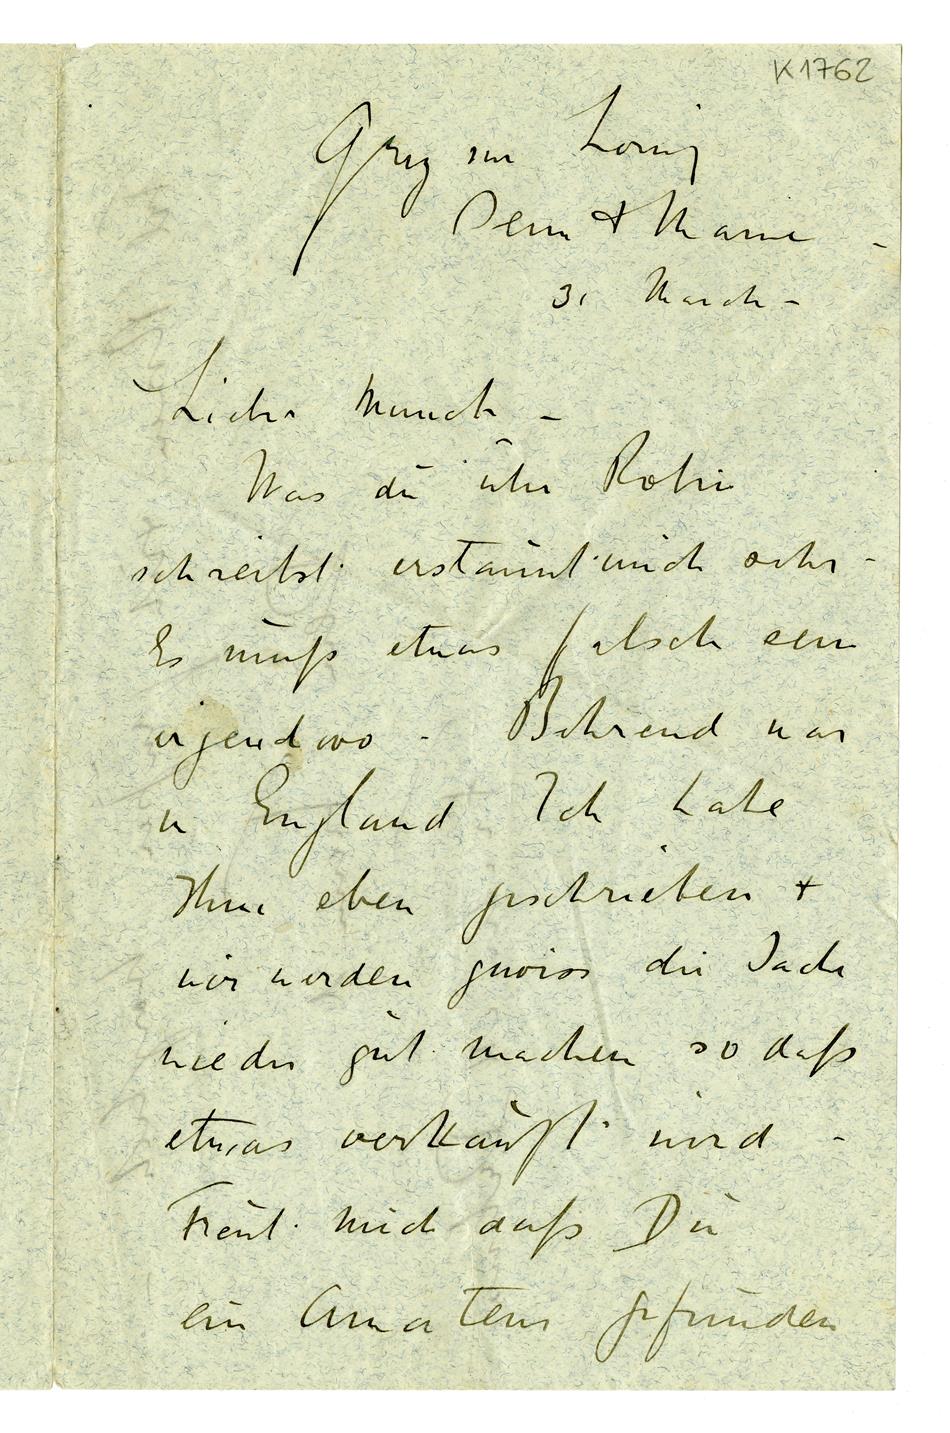 K1762
Grez sur Loing
Seine & Marne -
31 March -
Lieber Munch -
Was du über Robin
schreibst erstaunt mich sehr -
Es muß etwas falsch sein
irgendwo - Behrend war
in England Ich habe
Ihm eben geschrieben +
wir werden gewiss die Sache
wieder gut machen so daß
etwas verkauft wird -
Freut mich daß Du
ein Amateur gefunden